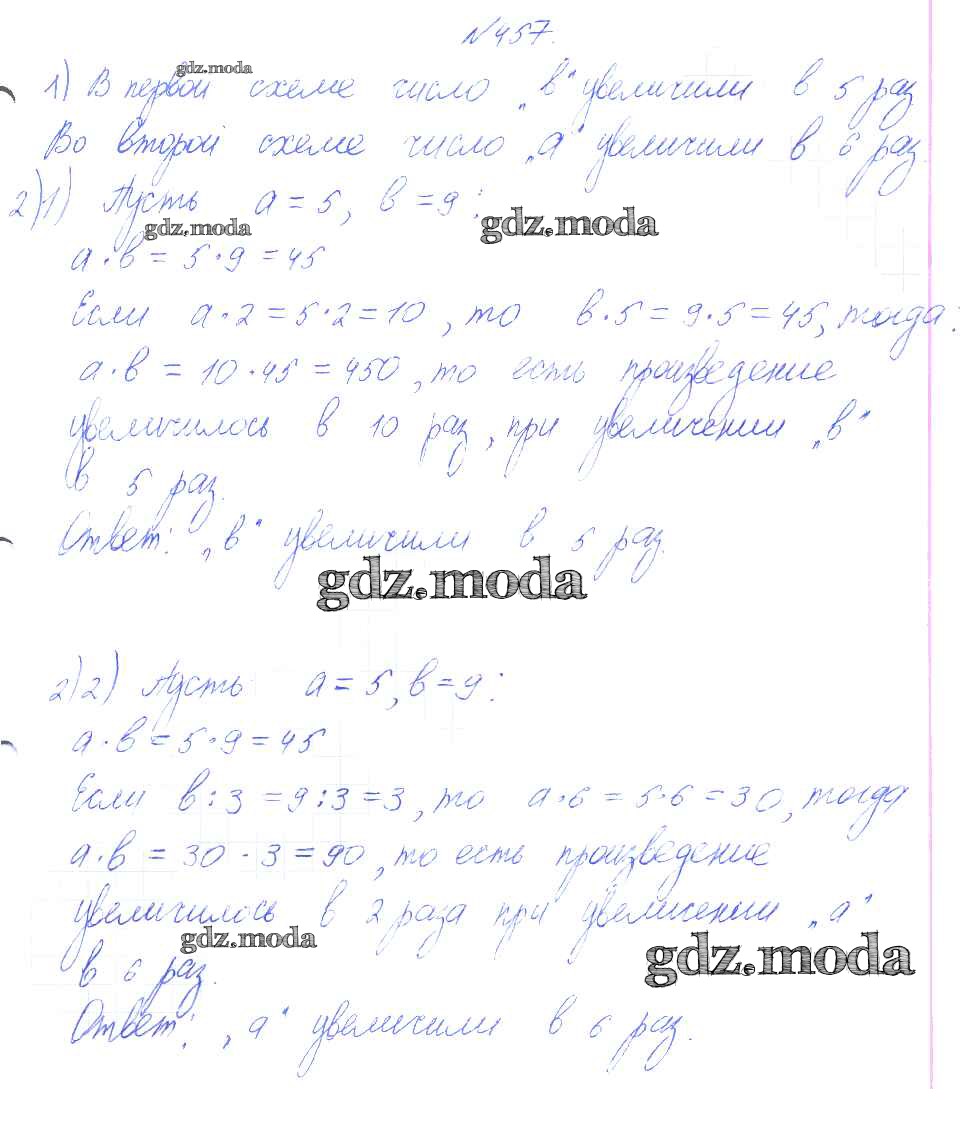 №457.
1) В первой схеме число „в" увеличили в 5 раз
Во второй схеме число „а" увеличили в 6 раз.
2)1) Пусть а = 5, в = 9:
а·в = 5·9 = 45
Если а·2 = 5·2 = 10, то в·5 = 9·5 = 45, тогда:
а·в = 10·45 = 450, то есть произведение
увеличилось в 10 раз, при увеличении „в"
в 5 раз.
Ответ: „в" увеличили в 5 раз.
2)2) Пусть а = 5, в = 9:
а·в = 5·9 = 45
Если в:3 = 9:3 = 3, то а·6 = 5·6 = 30, тогда
а·в = 30·3 = 90, то есть произведение
увеличилось в 2 раза при увеличении „а"
в 6 раз.
Ответ: „а" увеличили в 6 раз.
gdz.moda
gdz.moda
gdz.moda
gdz.moda
gdz.moda
gdz.moda